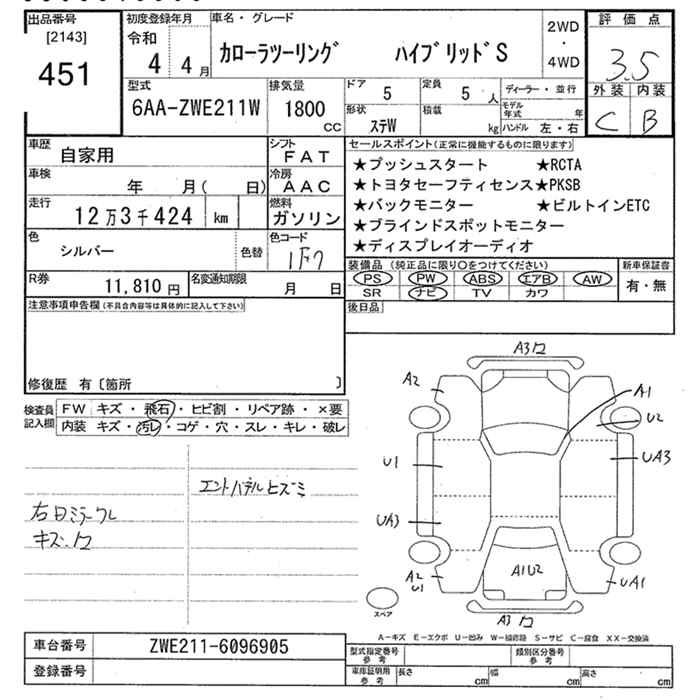 出品番号
[2143]
451
初度登録年月
令和
4 4月
車名・グレード
カローラツーリング ハイブリッドS
2WD
・
4WD
評価点
3.5
外装 内装
C B
型式
6AA-ZWE211W
排気量
1800
CC
ドア
5
定員
5 人
形状
ステW
積載
kg
ディーラー・並行
モデル年式 年
ハンドル 左・右
車歴
自家用
シフト
FAT
車検
年 月( 日)
冷房
AAC
走行
12万3千424 km
燃料
ガソリン
色
シルバー
色替
色コード
1F7
R券
11,810円
名変通知期限
月 日
セールスポイント(正常に機能するものに限ります)
★プッシュスタート ★RCTA
★トヨタセーフティセンス★PKSB
★バックモニター ★ビルトインETC
★ブラインドスポットモニター
★ディスプレイオーディオ
装備品 (純正品に限り○をつけてください)
PS PW ABS エアB AW
SR ナビ TV カワ
新車保証書
有・無
後日品
注意事項申告欄(不具合内容等は具体的に記入して下さい)
修復歴 有〔箇所 〕
検査員
記入欄
FW キズ・飛石・ヒビ割・リペア跡・×要
内装 キズ・汚レ・コゲ・穴・スレ・キレ・破レ
エンドパネルヒズミ
右ドミラーウレ
キズ、ワ
A3ワ
A2
A1
U2
U1
UA3
UA3
A2
U1
A1U2
UA1
A3ワ
スペア
A−キズ E−エクボ U−凹み W−補修跡 S−サビ C−腐食 XX−交換済
車台番号
ZWE211-6096905
登録番号
型式指定番号
参考
類別区分番号
参考
車庫証明用
参考
長さ cm
幅 cm
高さ cm